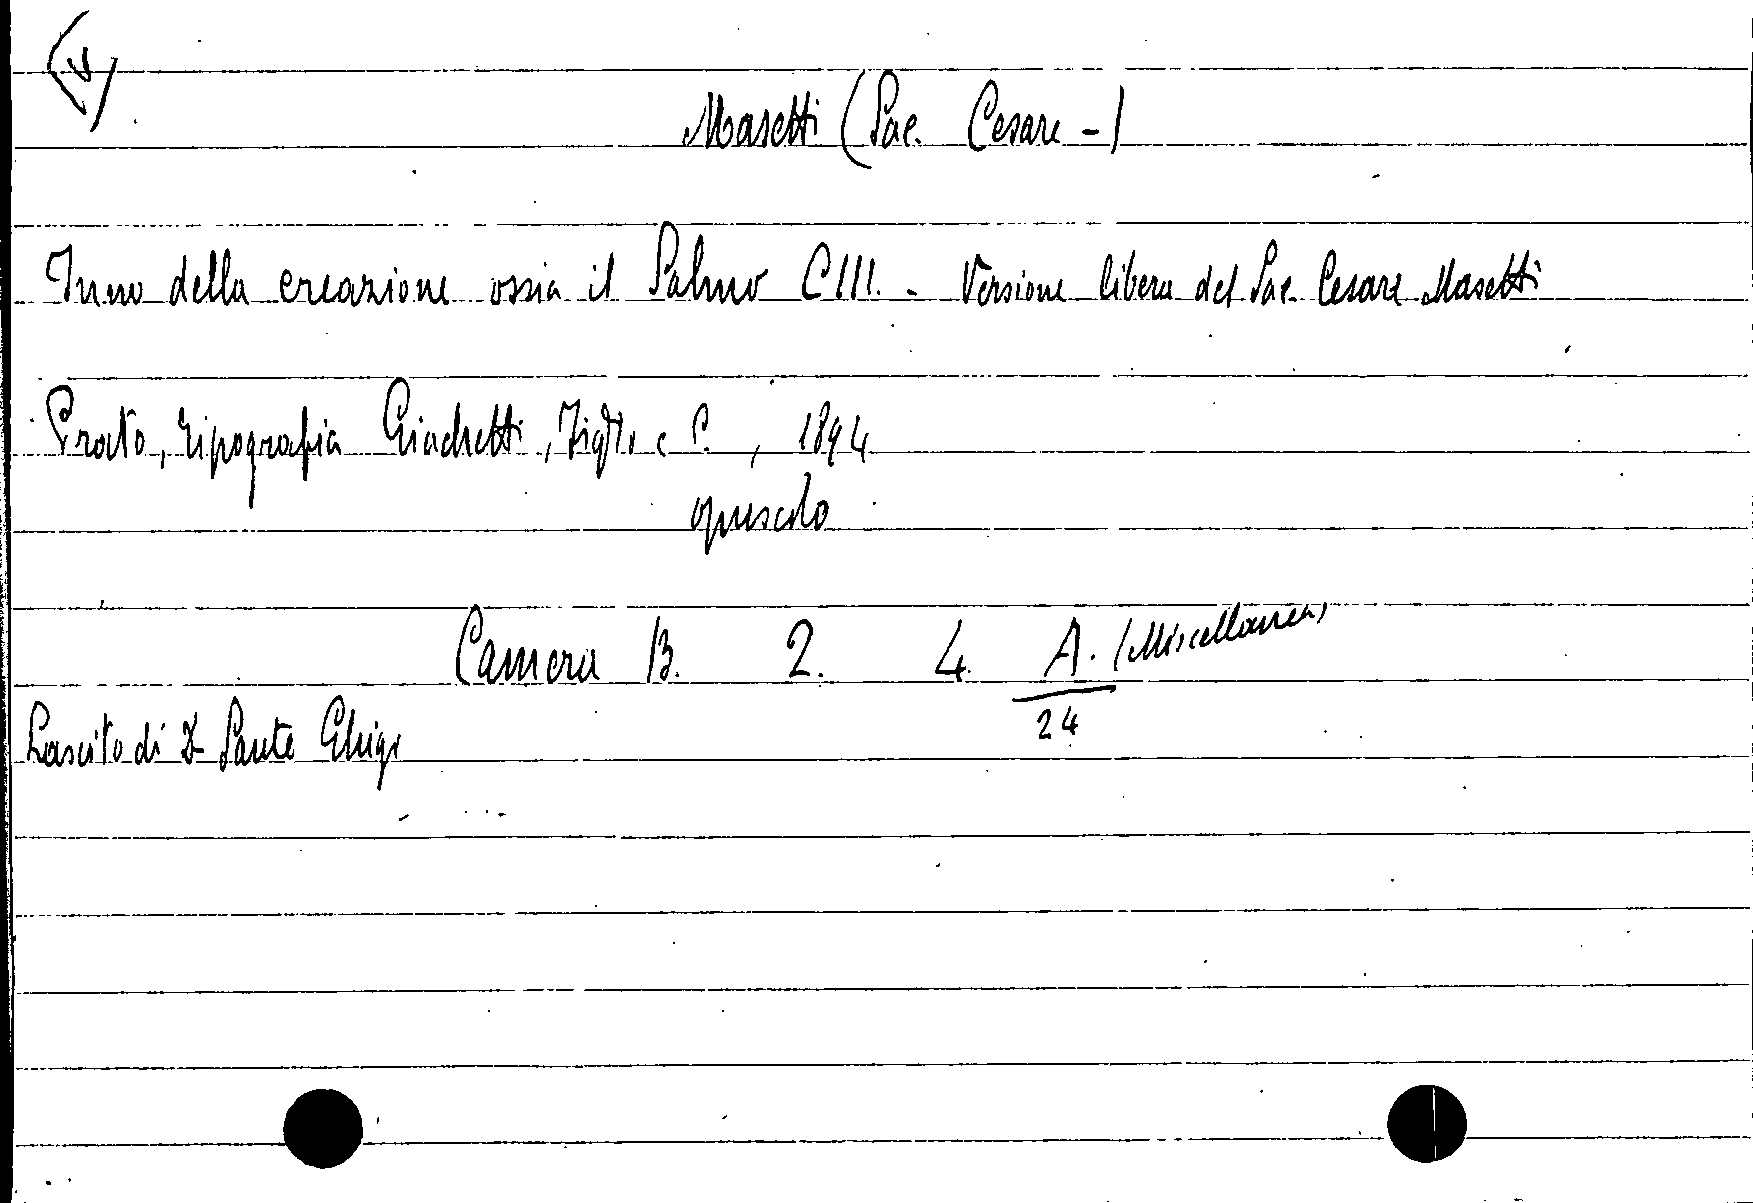 (v)
Masetti (Sac. Cesare -)
Inno della creazione ossia il Salmo CIII. - Versione libera del Sac. Cesare Masetti
Prato, tipografia Giachetti, Figlio e C., 1894
opuscolo
Camera B. 2. 4. A. (Miscellanea)
24
Lascito di D Sante Ghigi